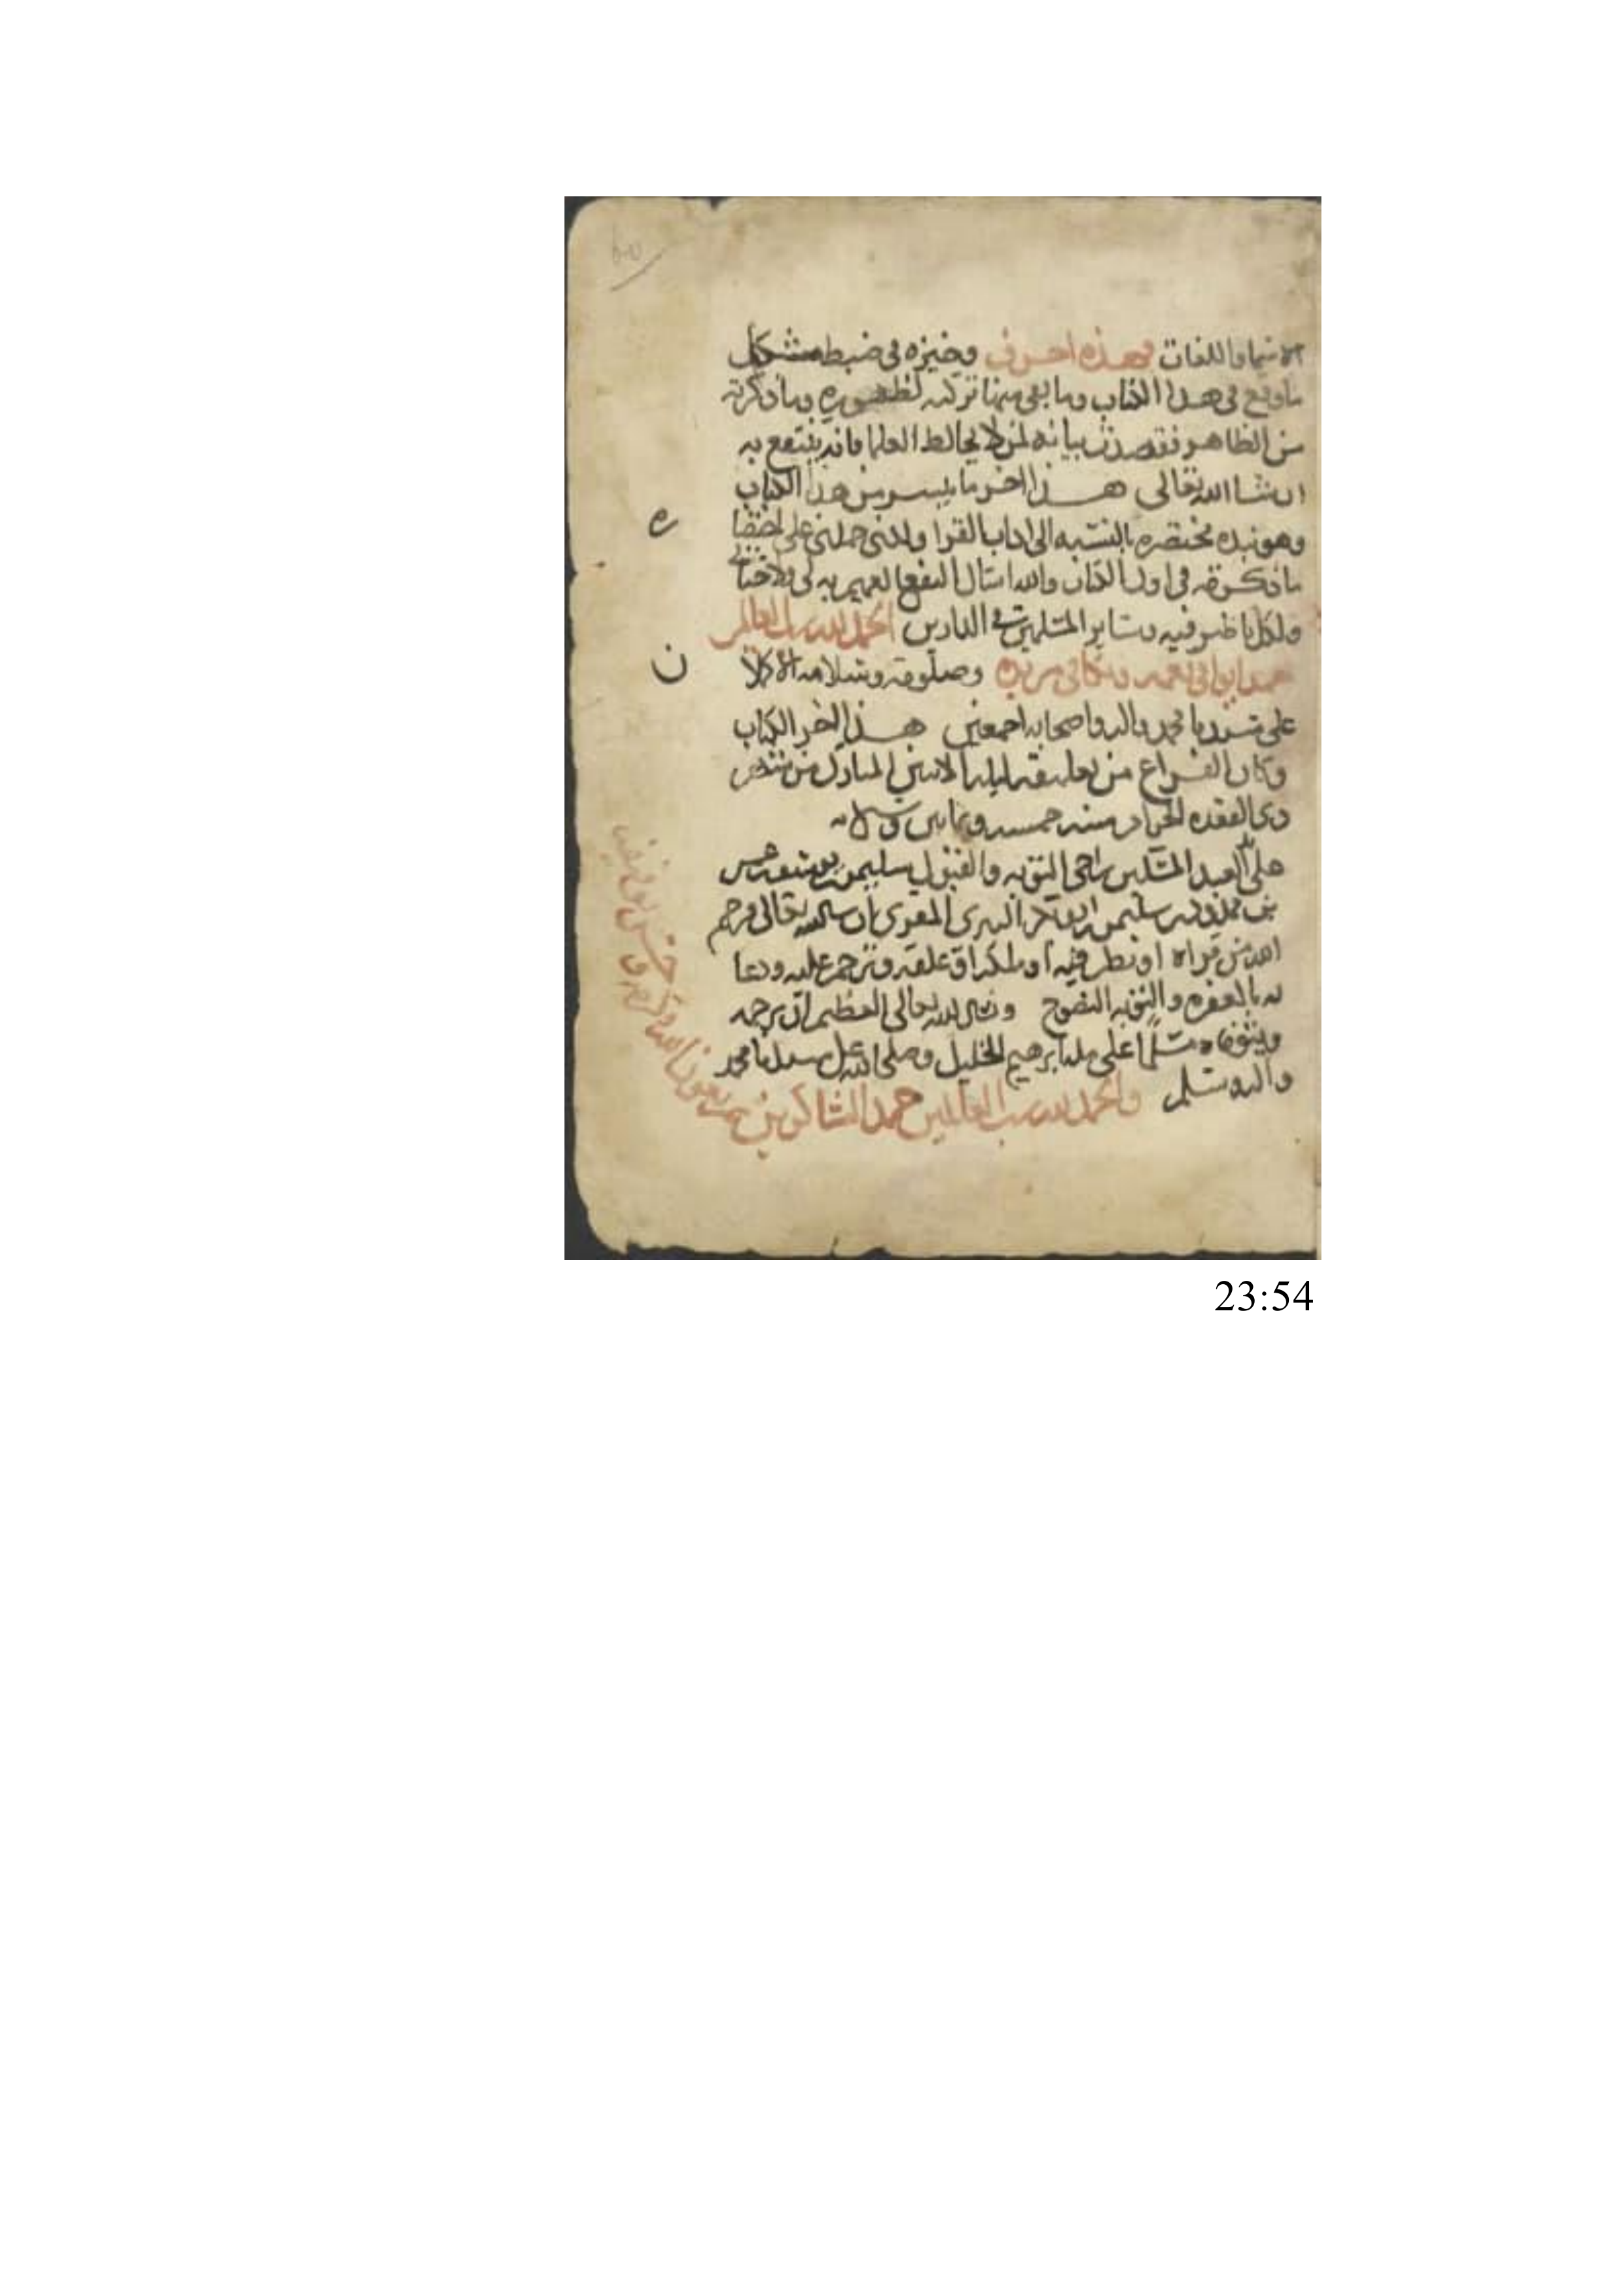 الاسما واللغات فهذه احرف وجيزه في ضبط مشكل
ما وقع في هذا الكتاب وما بقي منها تركته لظهوره وما ذكرته
من الظاهر فقصدت بيانه لمن لا يخالط العلما فانه ينتفع به
ان شا الله تعالى هذا اخر ما تيسر من هذا الكتاب
وهو نبذه مختصره بالنسبه الى اداب القرا ولكني حملني على اختصا
ما ذكرته في اول الكتاب والله اسال النفع العميم به لي ولاحبابي
ولكل ناظر فيه وساير المسلمين في الدارين الحمد لله رب العالمين
حمدا يوافي نعمه ويكافي مزيده وصلوته وسلامه الاكملا
على سيدنا محمد واله واصحابه اجمعين هذا اخر الكتاب
وكان الفراغ من تعليقه ليله الاثنين المبارك من شهر
ذي القعده الحرام سنه خمسه وثمانين و
العبد المسكين راجي التوبه والقبول سليمن بن
بن سليمن المقري ان سا الله تعالى ورحم
الله من قراه او نظر فيه او علقه وترحم عليه ودعا
له بالمغفره والتوبه النصوح ونسال الله تعالى العظيم ان يرحمه
ويتوفاه مسلما على مله ابرهيم الخليل وصلى الله على سيدنا محمد
واله وسلم والحمد لله رب العالمين حمد الشاكرين
ه
ن
23:54